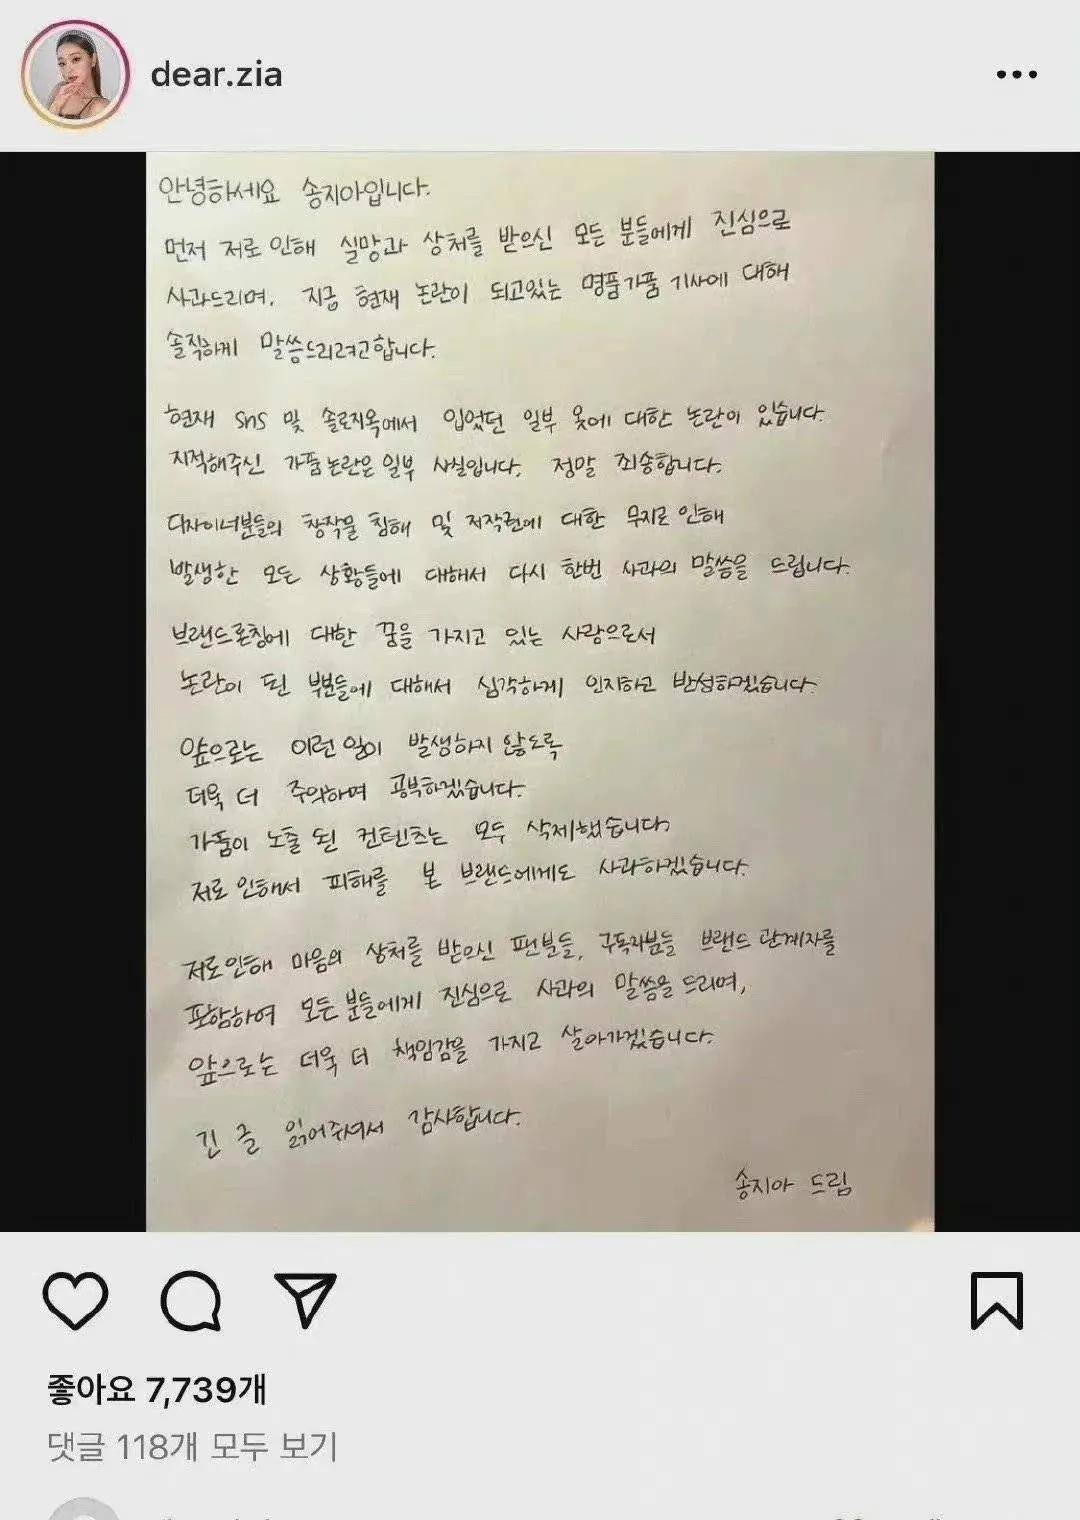 dear.zia
안녕하세요 송지아입니다.
먼저 저로 인해 실망과 상처를 받으신 모든 분들에게 진심으로
사과드리며, 지금 현재 논란이 되고있는 명품가품 기사에 대해
솔직하게 말씀드리려고합니다.
현재 sns 및 솔로지옥에서 입었던 일부 옷에 대한 논란이 있습니다.
지적해주신 가품논란은 일부 사실입니다. 정말 죄송합니다.
디자이너분들의 창작물 침해 및 저작권에 대한 무지로 인해
발생한 모든 상황들에 대해서 다시 한번 사과의 말씀을 드립니다.
브랜드론칭에 대한 꿈을 가지고 있는 사람으로서
논란이 된 부분들에 대해서 심각하게 인지하고 반성하겠습니다.
앞으로는 이런 일이 발생하지 않도록
더욱 더 주의하며 공부하겠습니다.
가품이 노출 된 컨텐츠는 모두 삭제했습니다.
저로 인해서 피해를 본 브랜드에게도 사과하겠습니다.
저로인해 마음의 상처를 받으신 팬분들, 구독자분들 브랜드 관계자를
포함하여 모든 분들에게 진심으로 사과의 말씀을 드리며,
앞으로는 더욱 더 책임감을 가지고 살아가겠습니다.
긴 글 읽어주셔서 감사합니다.
송지아 드림
좋아요 7,739개
댓글 118개 모두 보기